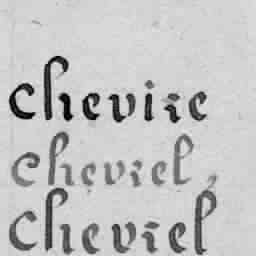 chevire
chevrel,
chevrel